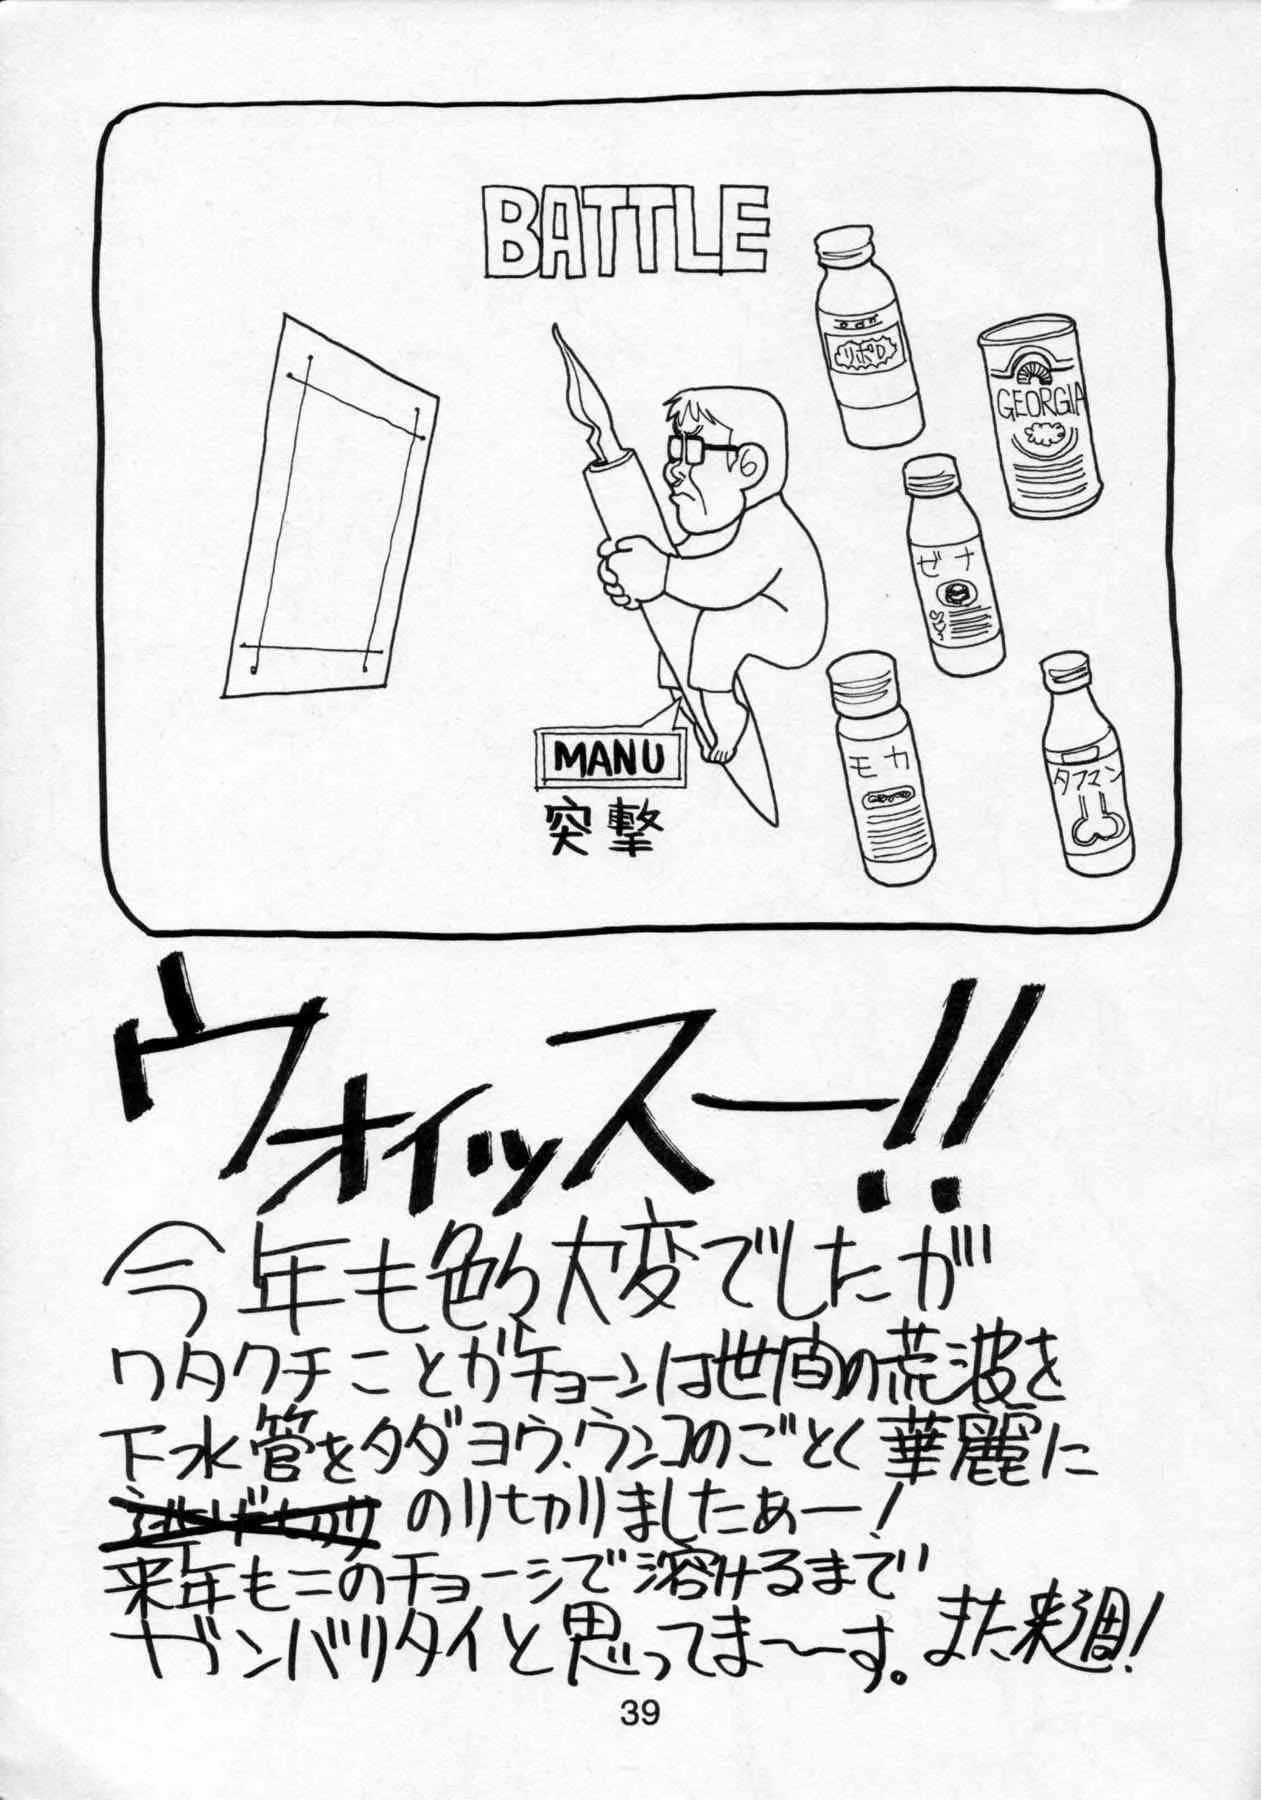 BATTLE
リポD
GEORGIA
ゼナ
MANU
突撃
モカ
タフマン
ウォイッスー!!
今年も色々大変でしたが
ワタクチことガチョーンは世間の荒波を
下水管をタダヨウ、ウンコのごとく華麗に
のりきりましたぁー!
来年もこのチョーシで溶けるまで
ガンバリタイと思ってま〜〜す。また来週!
39